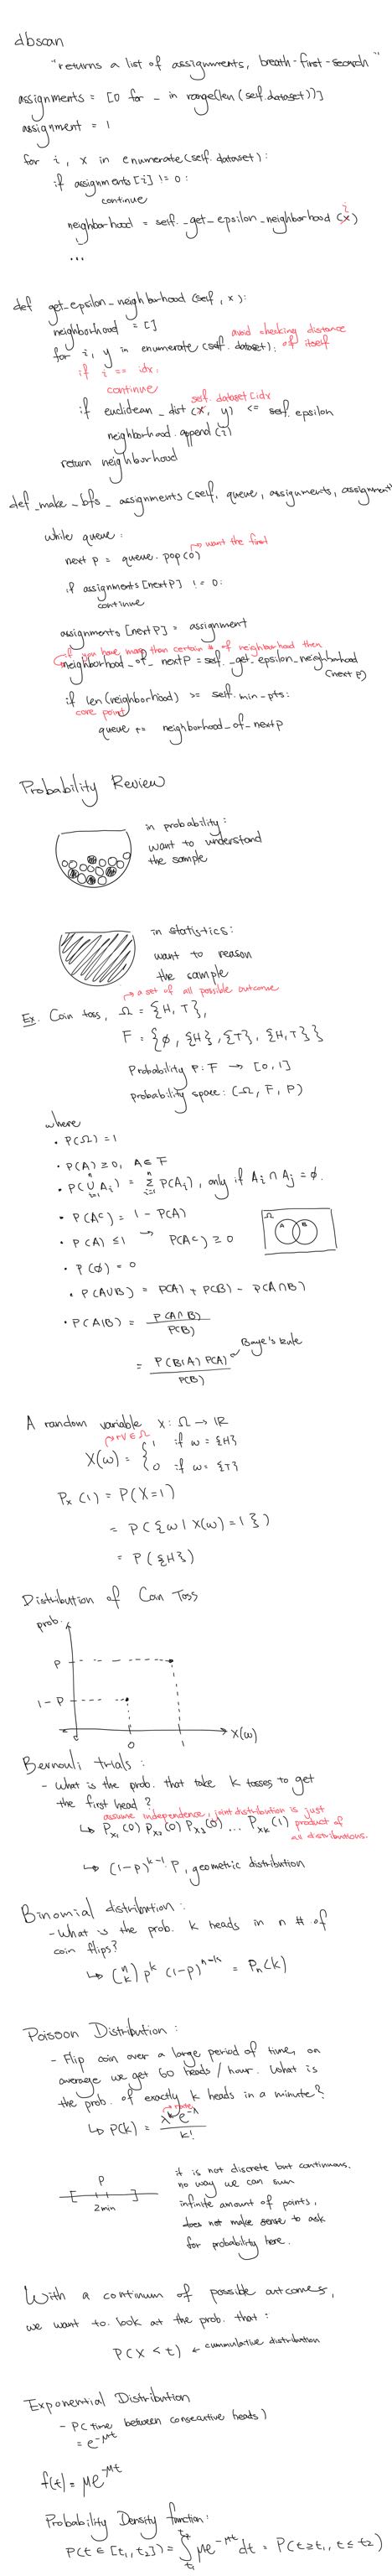 dbscan
"returns a list of assignments, breath-first-search"
assignments = [0 for _ in range(len(self.dataset))]
assignment = 1
for i, x in enumerate(self.dataset):
if assignments[i] != 0:
continue
i
neighborhood = self._get_epsilon_neighborhood (x)
...
def get_epsilon_neighborhood (self, x):
neighborhood = []
avoid checking distance
for i, y in enumerate (self.dataset): of itself
if i == idx:
continue
self.dataset[idx
if euclidean_dist (x, y) <= self.epsilon
neighborhood.append(i)
return neighborhood
def _make_bfs_assignments (self, queue, assignments, assignment
while queue:
next p = queue.pop(0) → want the first
if assignments[nextP] != 0:
continue
assignments [nextP] = assignment
if you have more than certain # of neighborhood then
neighborhood_of_nextP = self._get_epsilon_neighborhood
(next P)
if len(neighborhood) >= self.min_pts:
core point
queue += neighborhood_of_nextp
Probability Review
in probability:
want to understand
the sample
in statistics:
want to reason
the sample
→ a set of all possible outcome
Ex. Coin toss, Ω = {H, T},
F = {∅, {H}, {T}, {H,T}}
Probability P: F → [0,1]
probability space: (Ω, F, P)
where
• P(Ω) = 1
• P(A) ≥ 0, A ∈ F
• P(⋃ⁿᵢ₌₁ Aᵢ) = Σⁿᵢ₌₁ P(Aᵢ), only if Aᵢ ∩ Aⱼ = ∅.
• P(Aᶜ) = 1 - P(A)
Ω
A B
• P(A) ≤ 1 → P(Aᶜ) ≥ 0
• P(∅) = 0
• P(A∪B) = P(A) + P(B) - P(A∩B)
• P(A|B) = P(A∩B) / P(B)
Baye's Rule
= P(B|A) P(A) / P(B)
A random variable X: Ω → ℝ
→ rv ∈ Ω
X(ω) = { 1 if ω = {H}
0 if ω = {T}
Pₓ(1) = P(X=1)
= P({ω | X(ω) = 1})
= P({H})
Distribution of Coin Toss
prob.
P
1-P
0 1 X(ω)
Bernouli trials:
- What is the prob. that take k tosses to get
the first head?
assume independence, joint distribution is just
↳ Pₓ₁(0) Pₓ₂(0) Pₓ₃(0) ... Pₓₖ(1) product of
all distributions.
↳ (1-p)ᵏ⁻¹ P, geometric distribution
Binomial distribution:
- What is the prob. k heads in n # of
coin flips?
↳ (n k) pᵏ (1-p)ⁿ⁻ᵏ = Pₙ(k)
Poisson Distribution:
- Flip coin over a large period of time, on
average we get 60 heads / hour. What is
the prob. of exactly k heads in a minute?
→ rate
↳ P(k) = λᵏe^-λ / k!
P
2min
it is not discrete but continuous.
no way we can sum
infinite amount of points,
does not make sense to ask
for probability here.
With a continum of possible outcomes,
we want to look at the prob. that:
P(X < t) ← cummulative distribution
Exponential Distribution
- P(time between consecutive heads)
= e^-μt
f(t) = μe^-μt
Probability Density function:
P(t ∈ [t₁, t₂]) = ∫ μe^-μt dt = P(t≥t₁, t≤t₂)